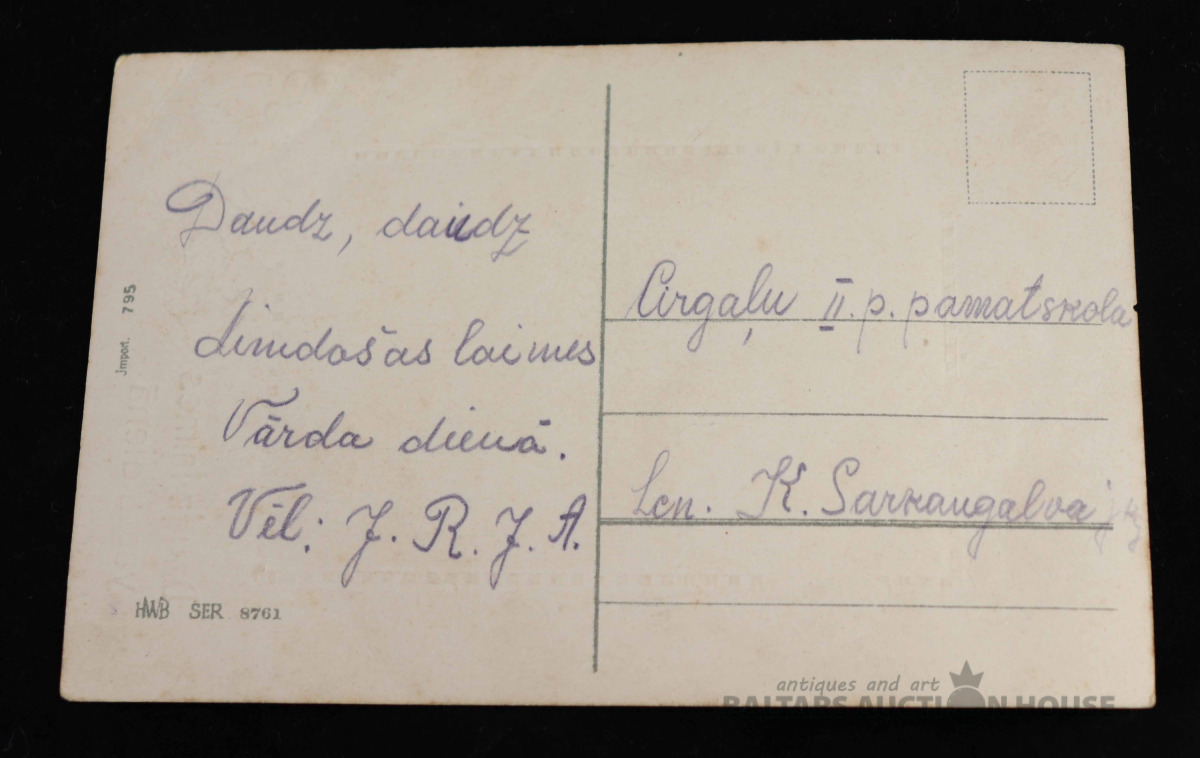 Daudz, daudz
Limdošas laimes
Vārda dienā.
Vēl: J. R. J. A.
Cirgaļu II. p. pamatskola
Lcn. K. Sarkangalvajkj
Jmport. 795
HWB SER 8761
antiques and art
BALTARS AUCTION HOUSE